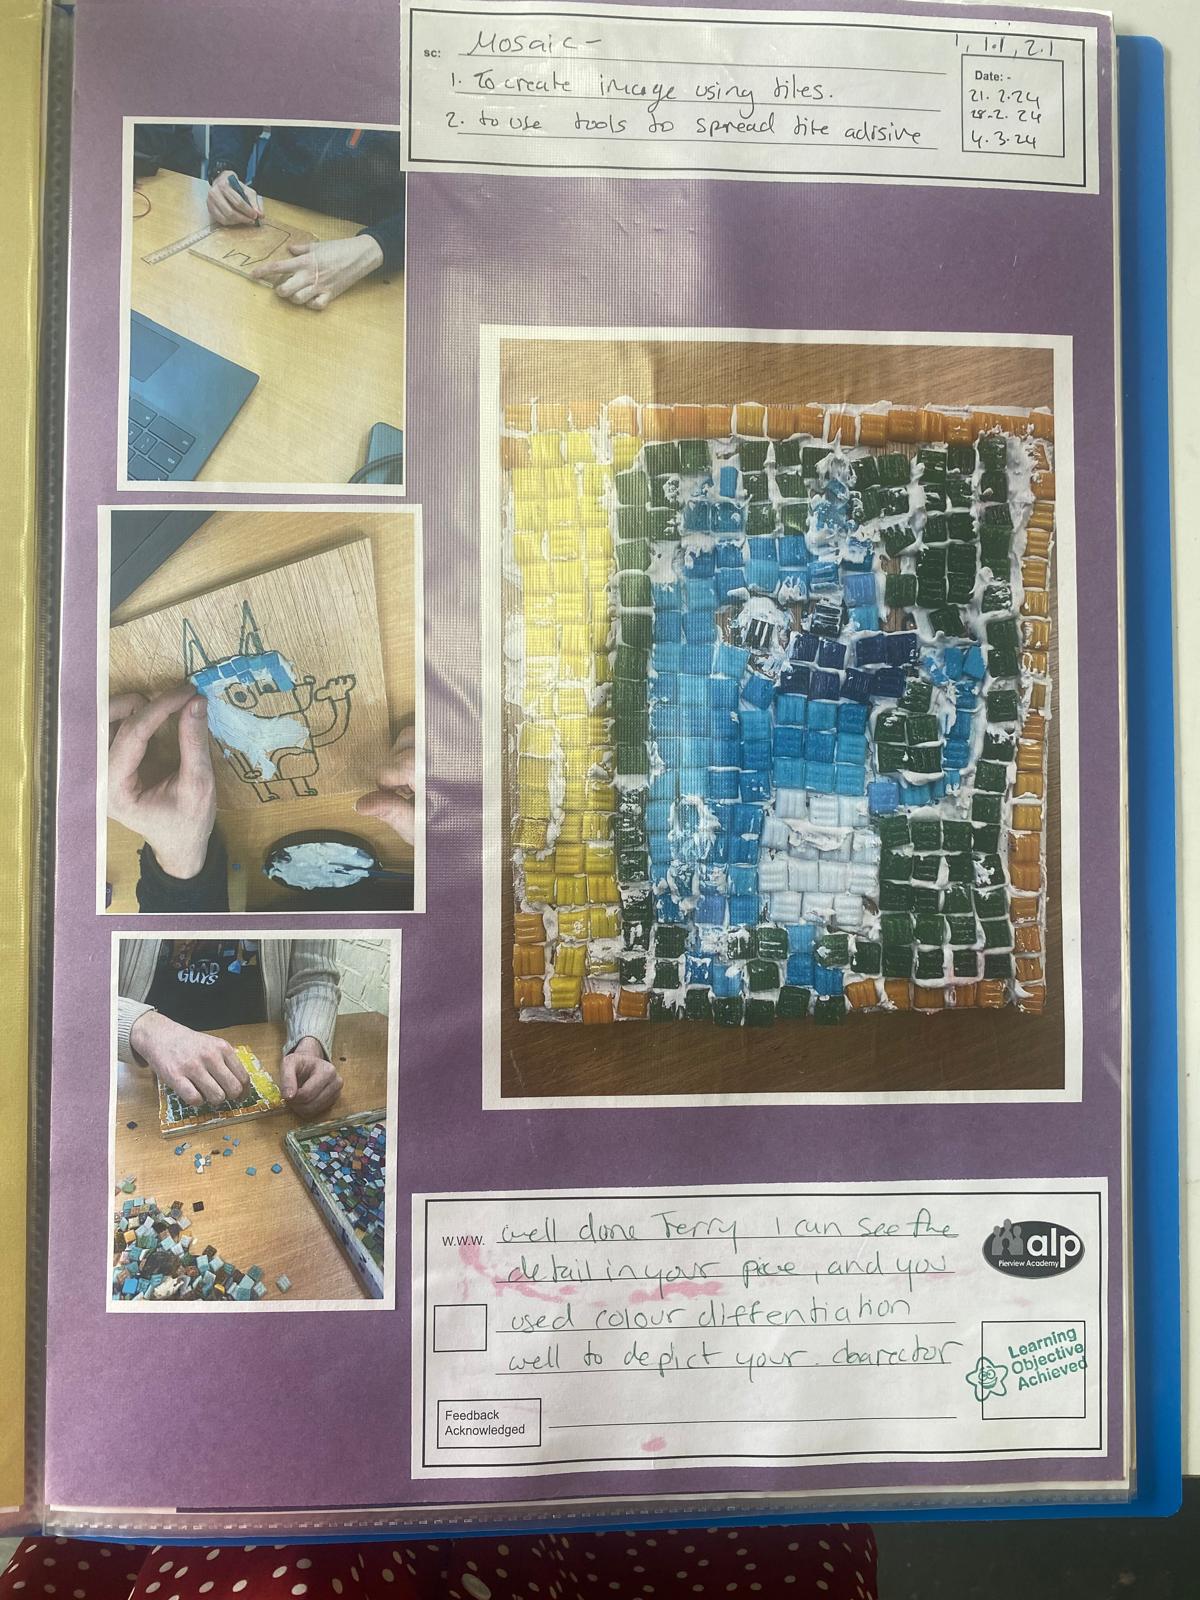 sc: Mosaic-
1, 1.1, 2.1
1. To create image using tiles.
2. to use tools to spread tile adisive
Date: -
21. 2.24
28-2. 24
4. 3.24
GUYS
w.w.w. well done Terry I can see the
detail in your piece, and you
used colour diffentiation
well to depict your charector
alp
Pierview Academy
Learning
Objective
Achieved
Feedback
Acknowledged